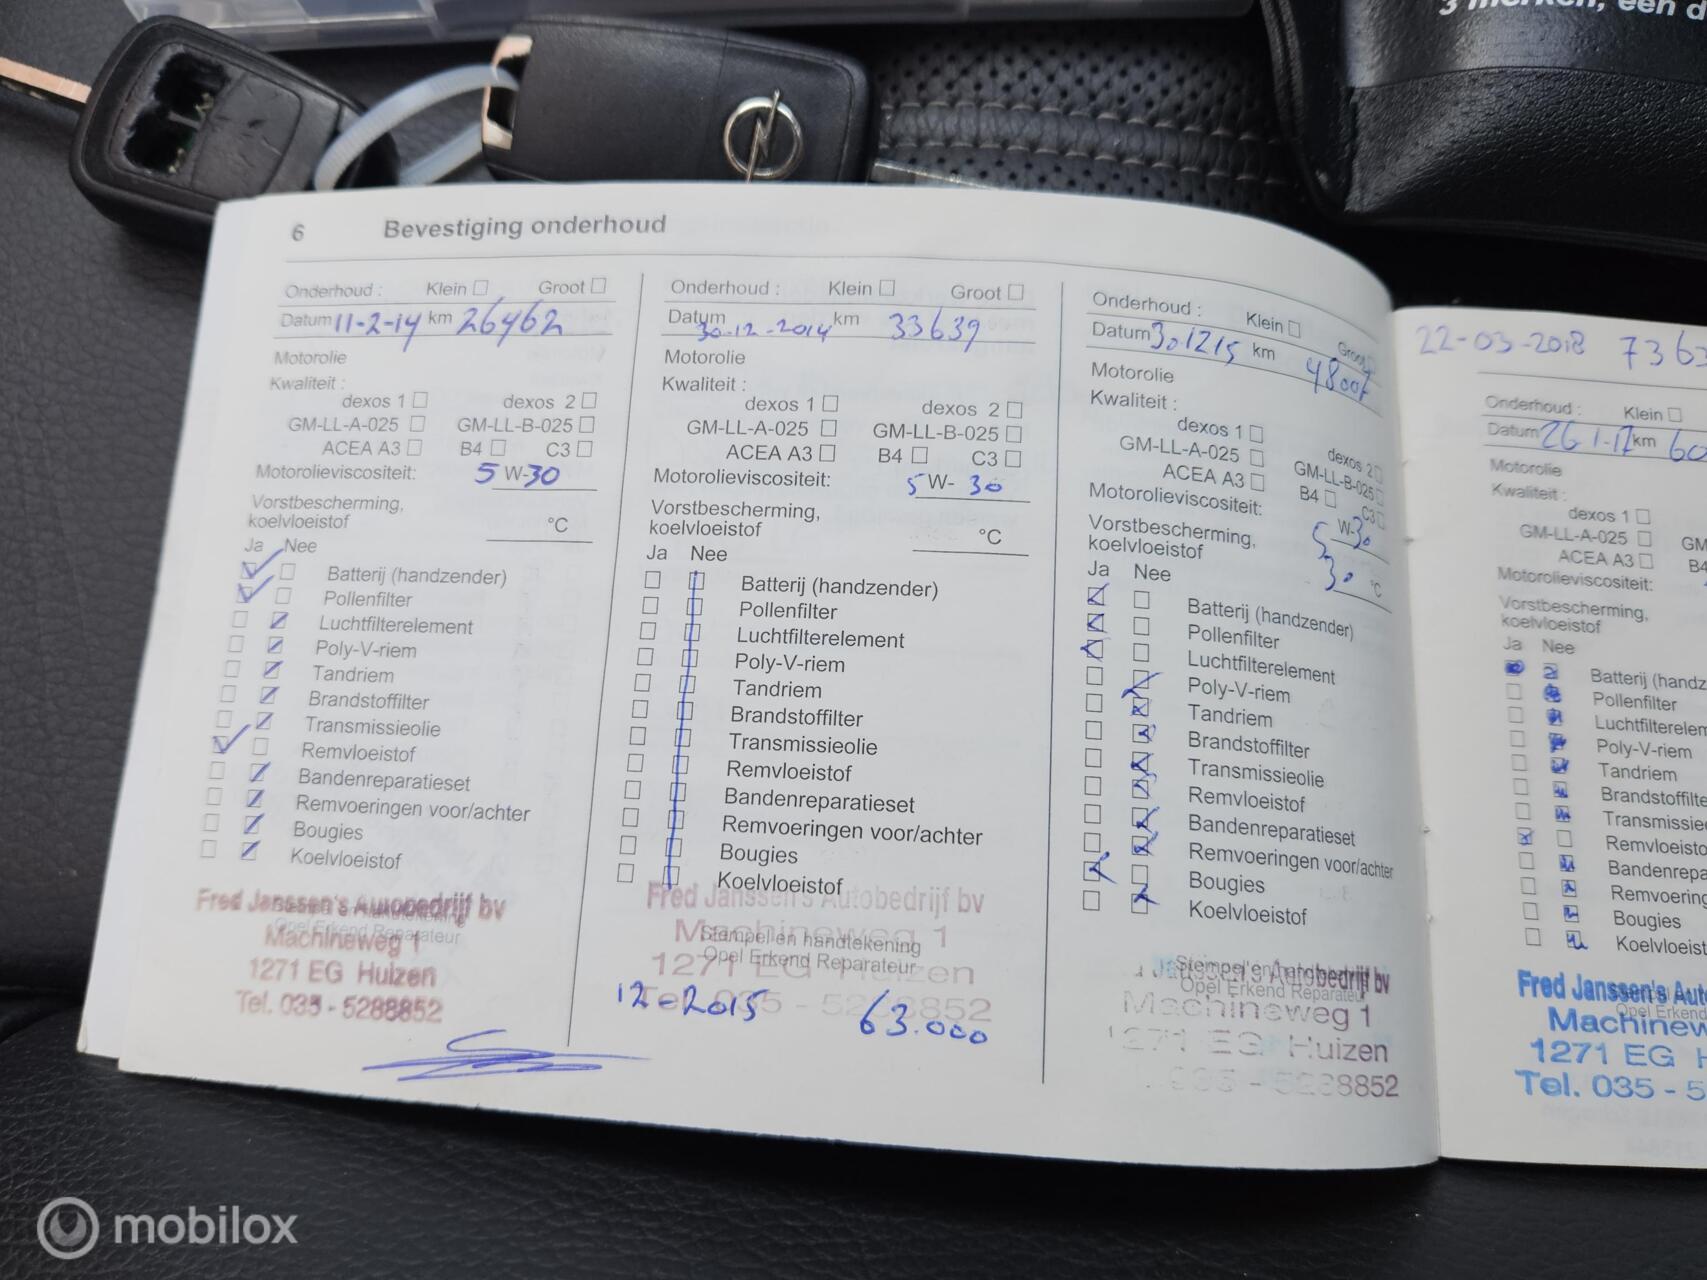 3 merken, een d
6 Bevestiging onderhoud
Onderhoud : Klein Groot
Datum 11-2-14 km 26462
Motorolie
Kwaliteit :
dexos 1 dexos 2
GM-LL-A-025 GM-LL-B-025
ACEA A3 B4 C3
Motorolieviscositeit: 5 W-30
Vorstbescherming,
koelvloeistof °C
Ja Nee
Batterij (handzender)
Pollenfilter
Luchtfilterelement
Poly-V-riem
Tandriem
Brandstoffilter
Transmissieolie
Remvloeistof
Bandenreparatieset
Remvoeringen voor/achter
Bougies
Koelvloeistof
Fred Janssen's Autobedrijf bv
Stempel en handtekening
Opel Erkend Reparateur
Machineweg 1
1271 EG Huizen
Tel. 035 - 5288852
Onderhoud : Klein Groot
Datum 30-12-2014 km 33639
Motorolie
Kwaliteit :
dexos 1 dexos 2
GM-LL-A-025 GM-LL-B-025
ACEA A3 B4 C3
Motorolieviscositeit: 5 W- 30
Vorstbescherming,
koelvloeistof °C
Ja Nee
Batterij (handzender)
Pollenfilter
Luchtfilterelement
Poly-V-riem
Tandriem
Brandstoffilter
Transmissieolie
Remvloeistof
Bandenreparatieset
Remvoeringen voor/achter
Bougies
Koelvloeistof
Fred Janssen's Autobedrijf bv
Machineweg 1
Stempel en handtekening
Opel Erkend Reparateur
1271 EG Huizen
Tel. 035 - 5288852
12-2015 63.000
Onderhoud : Klein Groot
Datum 30.12 15 km
Motorolie
Kwaliteit :
dexos 1 dexos 2
GM-LL-A-025 GM-LL-B-025
ACEA A3 B4 C3
Motorolieviscositeit: 5 W-30
Vorstbescherming,
koelvloeistof 30 °C
Ja Nee
Batterij (handzender)
Pollenfilter
Luchtfilterelement
Poly-V-riem
Tandriem
Brandstoffilter
Transmissieolie
Remvloeistof
Bandenreparatieset
Remvoeringen voor/achter
Bougies
Koelvloeistof
Stempel en handtekening
Janssen's Autobedrijf bv
Opel Erkend Reparateur
Machineweg 1
1271 EG Huizen
035 - 5288852
22-03-2018 7363
Onderhoud : Klein
Datum 26 1-17 km 60
Motorolie
Kwaliteit :
dexos 1
GM-LL-A-025 GM
ACEA A3 B4
Motorolieviscositeit:
Vorstbescherming,
koelvloeistof
Ja Nee
Batterij (handz
Pollenfilter
Luchtfilterelem
Poly-V-riem
Tandriem
Brandstoffilte
Transmissie
Remvloeisto
Bandenrepa
Remvoering
Bougies
Koelvloeist
Fred Janssen's Auto
Opel Erkend
Machinew
1271 EG H
Tel. 035 - 5
mobilox